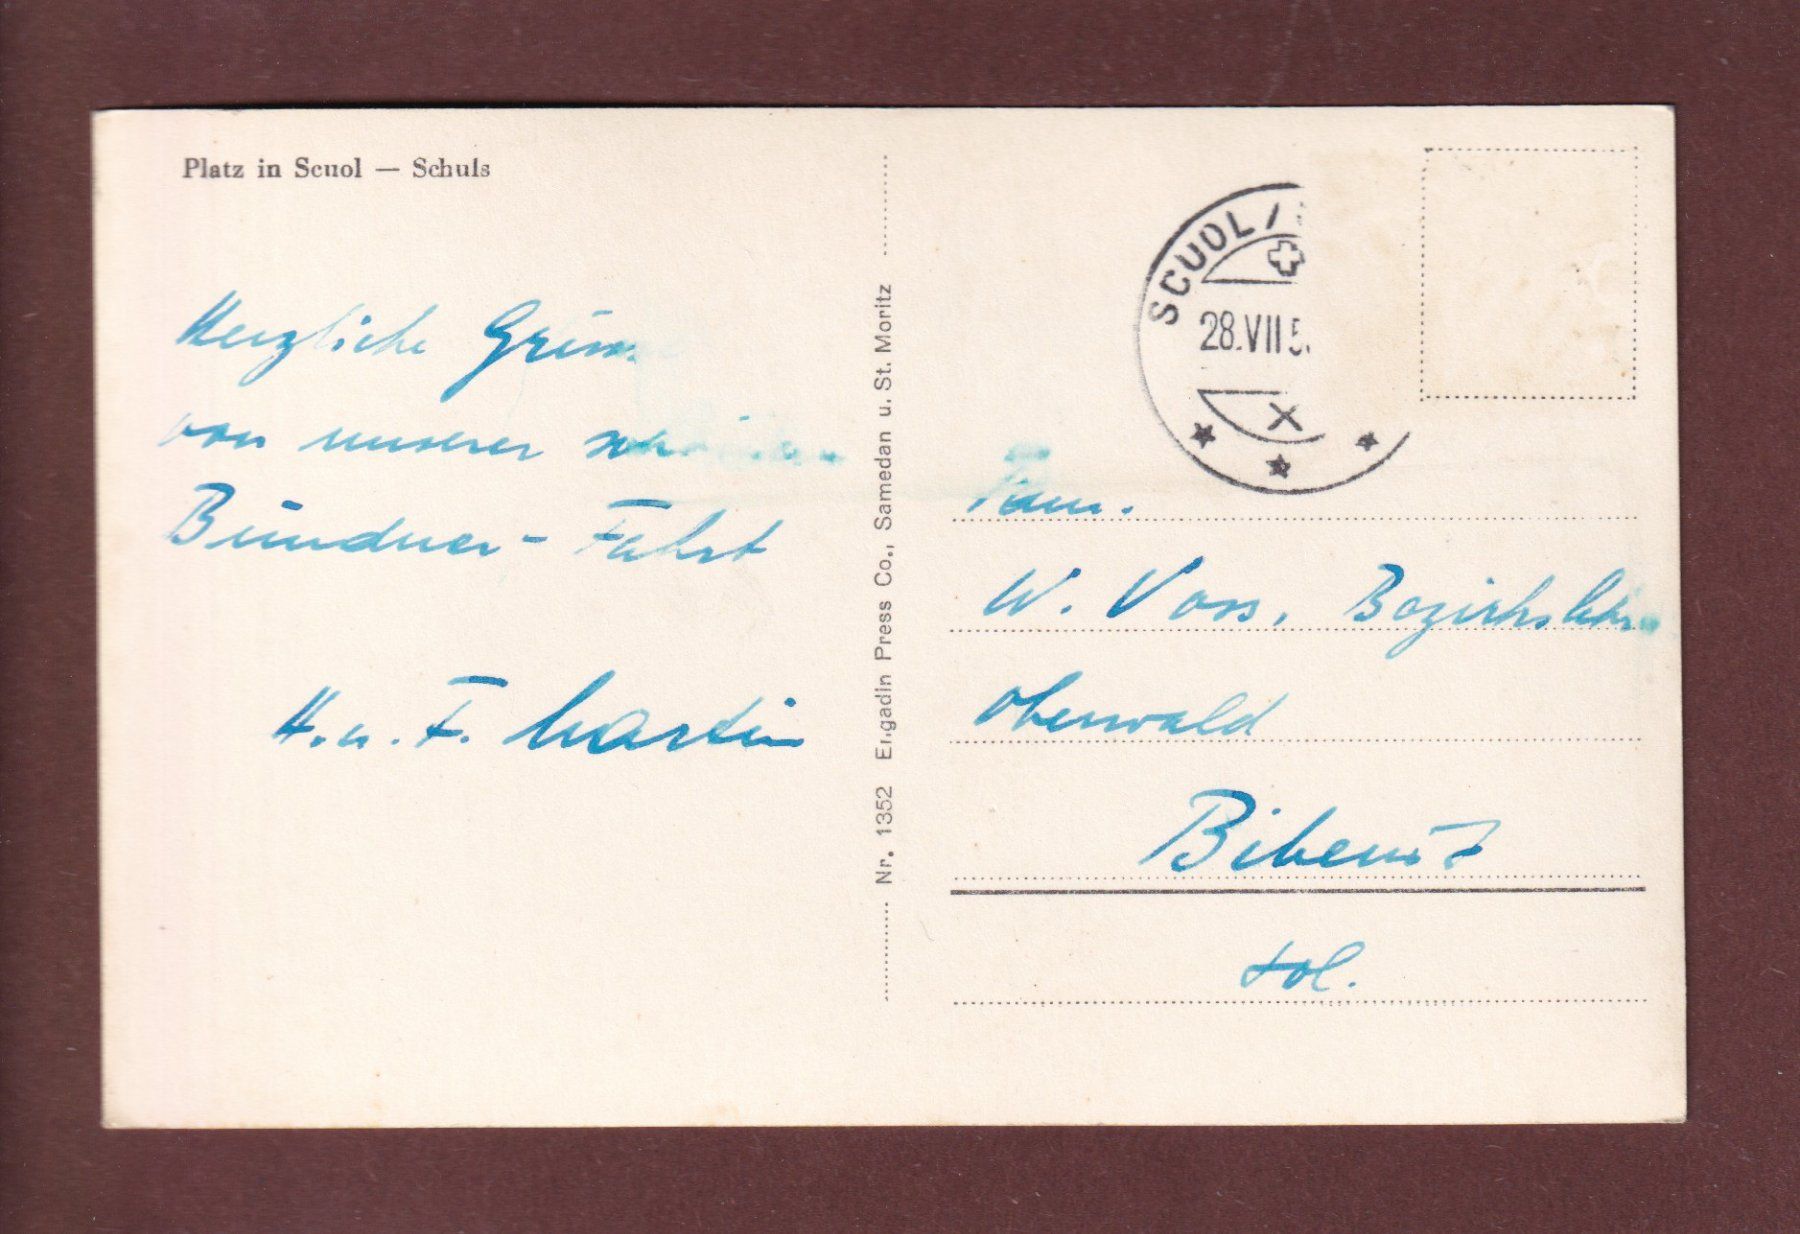 Platz in Scuol — Schuls
Herzliche Grüsse
von unserer schönen
Bündner-Fahrt
H. u. F. Martin
Nr. 1352 Engadin Press Co., Samedan u. St. Moritz
SCUOL/
28.VII 5
X
Fam.
W. Voss, Bezirkslehrer
Oberwald
Biberist
Sol.